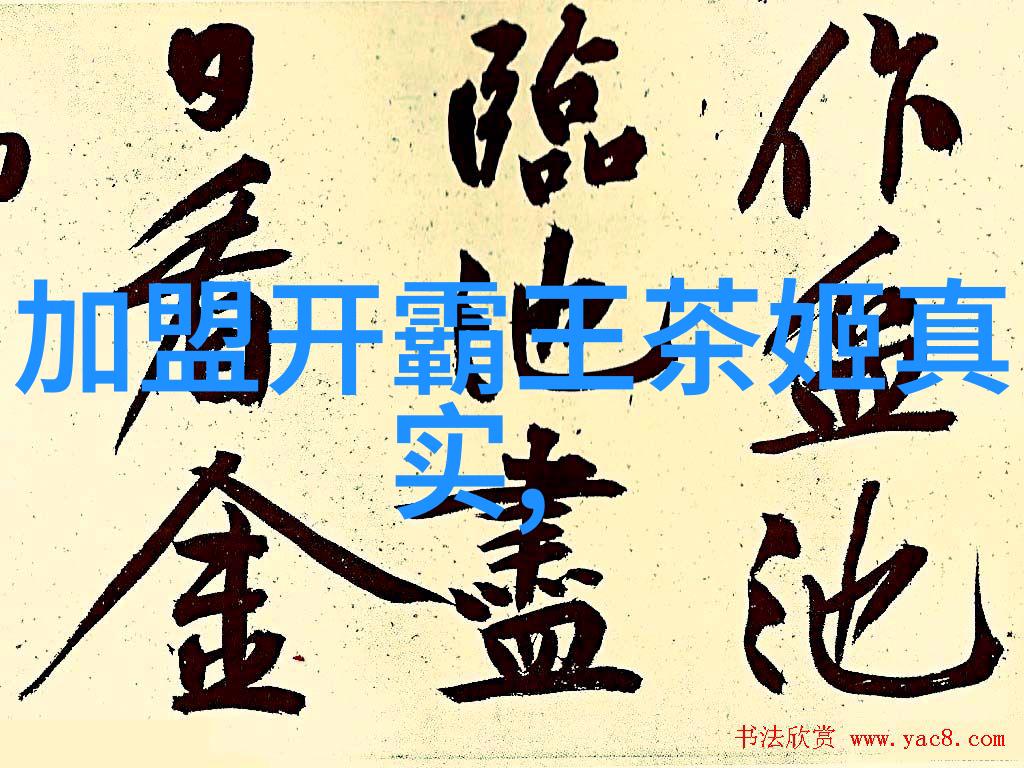 加盟开霸王茶姬真
实,
作盆池
臨池盡
日看金
书法欣赏 www.yac8.com